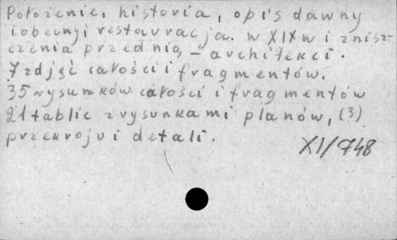 Położenie, historia, opis dawny
i obecny, restauracja w XIX w i znisz-
czenia przed nią – architekci.
7 zdjęć całości i fragmentów.
35 rysunków całości i fragmentów
21 tablic z rysunkami planów, (3)
przekroju i detali.
XI/748